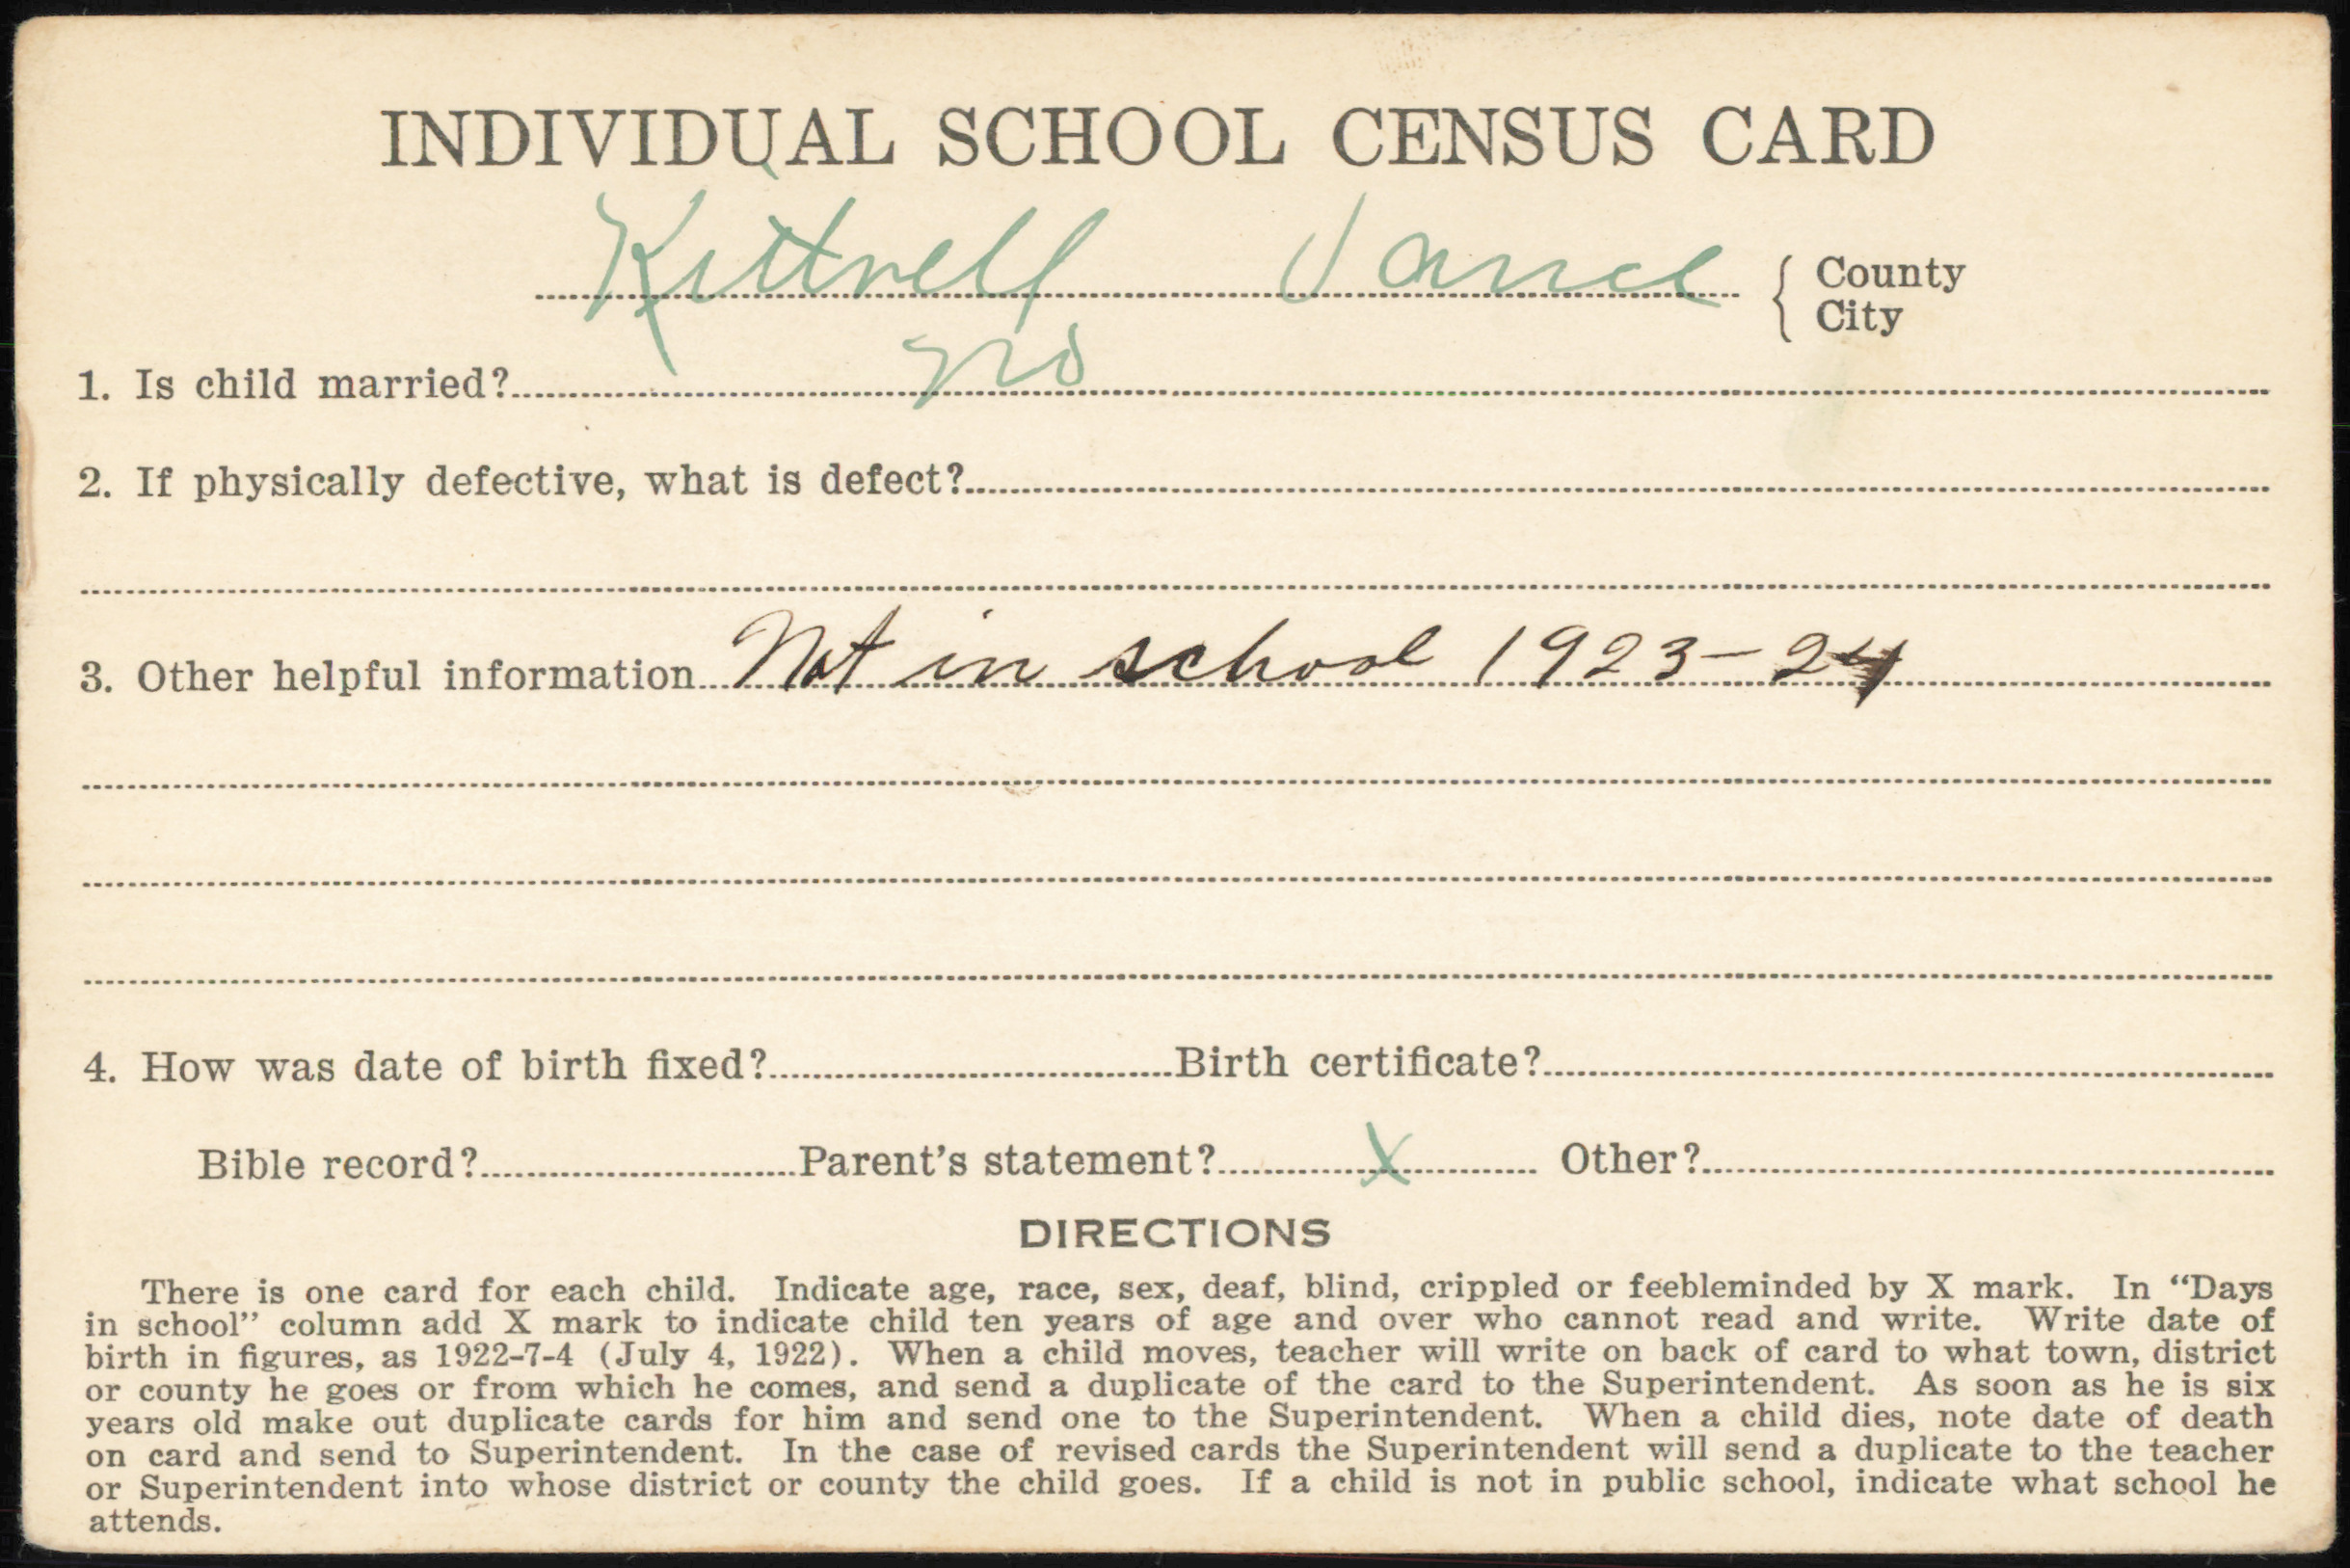 INDIVIDUAL SCHOOL CENSUS CARD
Kittrell Vance { County
City
1. Is child married? no
2. If physically defective, what is defect?
3. Other helpful information Not in school 1923-24
4. How was date of birth fixed? Birth certificate?
Bible record? Parent's statement? X Other?
DIRECTIONS
There is one card for each child. Indicate age, race, sex, deaf, blind, crippled or feebleminded by X mark. In “Days
in school” column add X mark to indicate child ten years of age and over who cannot read and write. Write date of
birth in figures, as 1922-7-4 (July 4, 1922). When a child moves, teacher will write on back of card to what town, district
or county he goes or from which he comes, and send a duplicate of the card to the Superintendent. As soon as he is six
years old make out duplicate cards for him and send one to the Superintendent. When a child dies, note date of death
on card and send to Superintendent. In the case of revised cards the Superintendent will send a duplicate to the teacher
or Superintendent into whose district or county the child goes. If a child is not in public school, indicate what school he
attends.